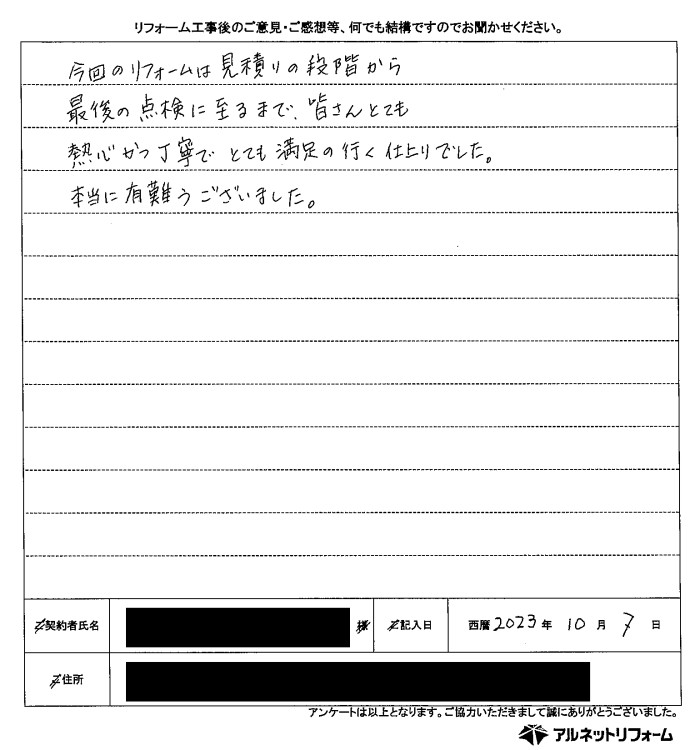 リフォーム工事後のご意見・ご感想等、何でも結構ですのでお聞かせください。
今回のリフォームは見積りの段階から
最後の点検に至るまで、皆さんとても
熱心かつ丁寧でとても満足の行く仕上りでした。
本当に有難うございました。
ご契約者氏名 様 ご記入日 西暦2023年 10月 7日
ご住所
アンケートは以上となります。ご協力いただきまして誠にありがとうございました。
アルネットリフォーム